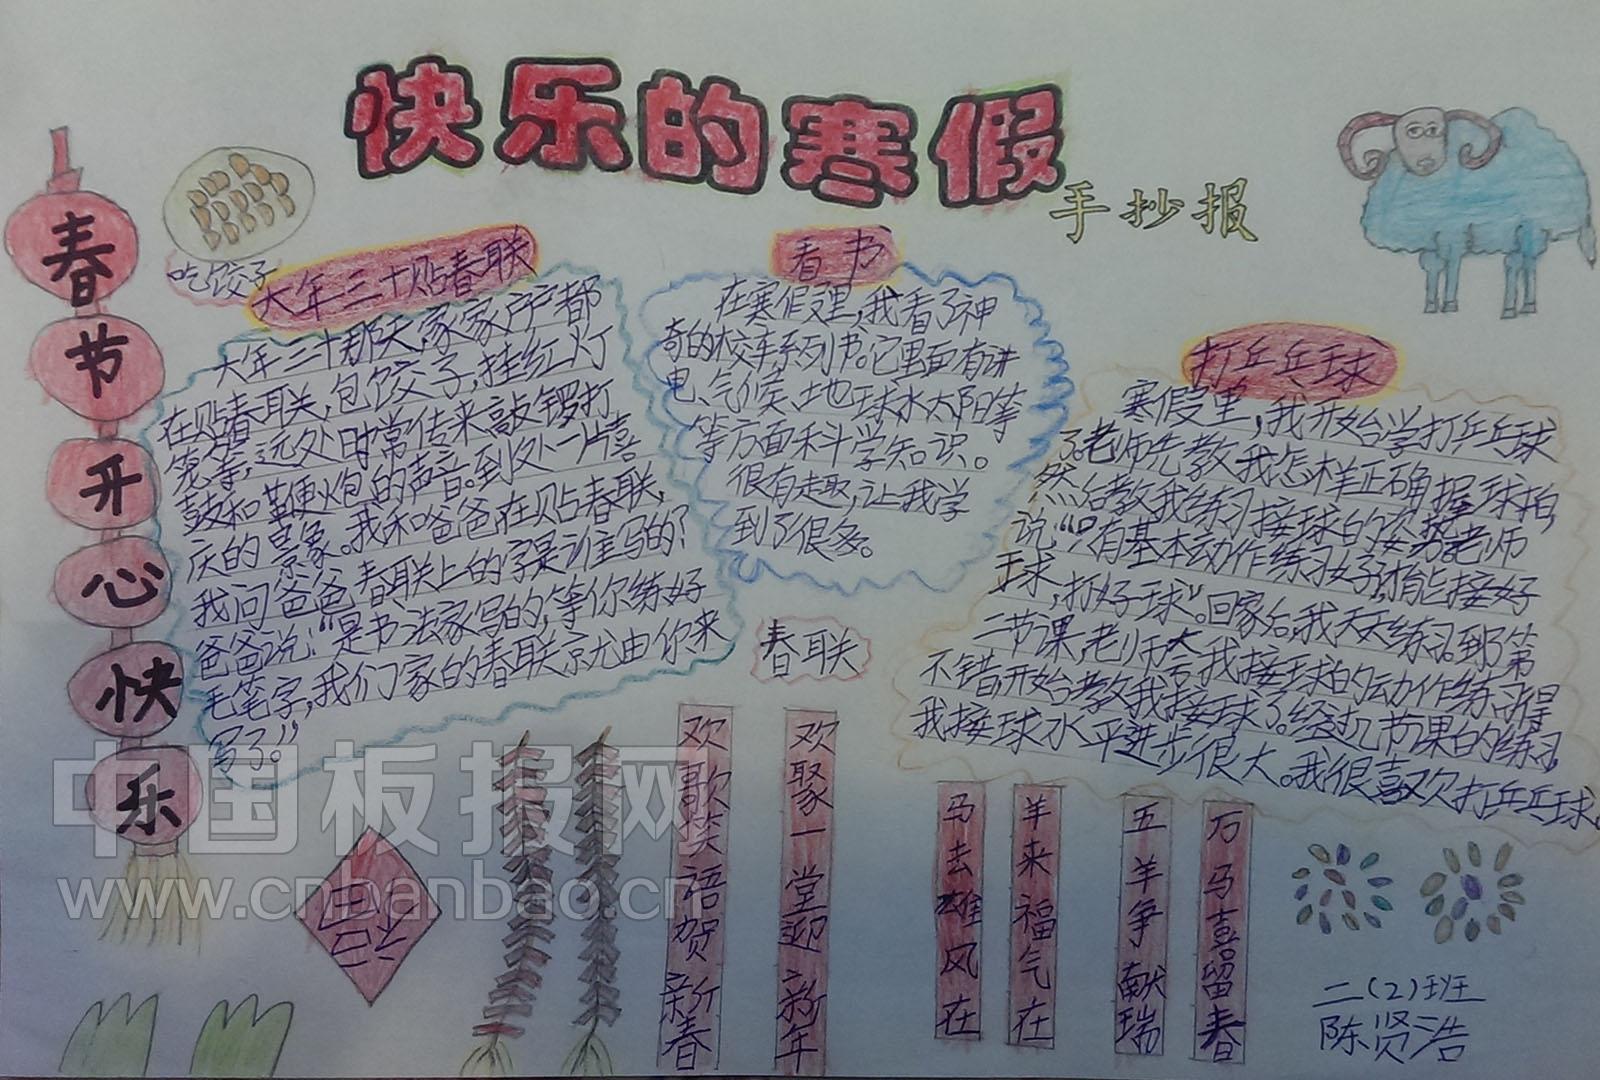 快乐的寒假
手抄报
春节开心快乐
吃饺子
大年三十贴春联
大年三十那天,家家户户都
在贴春联,包饺子,挂红灯
笼等,远处时常传来敲锣打
鼓和鞭炮的声音。到处一片喜
庆的景象。我和爸爸在贴春联,
我问爸爸,春联上的字是谁写的?
爸爸说:“是书法家写的,等你练好
毛笔字,我们家的春联就由你来
写了。”
看书
在寒假里,我看了神
奇的校车系列书。它里面有讲
电、气候、地球水太阳等
等方面科学知识。
很有走趣,让我学
到了很多。
打乒乓球
寒假里,我开始学打乒乓球
了。老师先教我怎样正确握球拍,
然后教我练习接球的姿势老师
说:“只有基本动作练习好了,才能接好
球,打好球”。回家后,我天天练习。到了第
二节课,老师夸我接球的动作练习得
不错,开始教我接球了。经过几节课的练习,
我接球水平进步很大。我很喜欢打乒乓球。
春联
欢歌笑语贺新春
欢聚一堂迎新年
马去雄风在
羊来福气在
五羊争献瑞
万马喜留春
福
二(2)班
陈贤浩
中国板报网
www.cnbanbao.cn